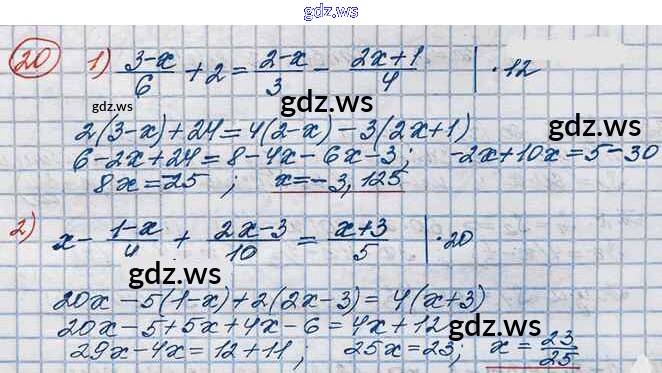 gdz.ws
20 1) (3-x)/6 + 2 = (2-x)/3 - (2x+1)/4 | ·12
gdz.ws gdz.ws
2(3-x)+24=4(2-x)-3(2x+1) gdz.ws
6-2x+24=8-4x-6x-3; -2x+10x=5-30
8x=-25; x=-3,125
gdz.ws
2) x - (1-x)/4 + (2x-3)/10 = (x+3)/5 | ·20
gdz.ws gdz.ws
20x-5(1-x)+2(2x-3)=4(x+3)
20x-5+5x+4x-6=4x+12
gdz.ws
29x-4x=12+11; 25x=23; x=23/25
gdz.ws